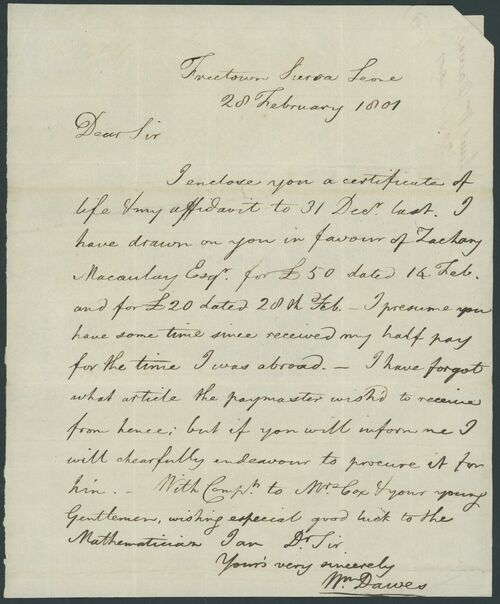 Freetown Sierra Leone
28 February 1801
Dear Sir
I enclose you a certificate of
life & my affidavit to 31 Decr. last. I
have drawn on you in favour of Zachary
Macaulay Esqr. for £50 dated 14 Feb.
and for £20 dated 28th Feb. – I presume you
have some time since received my half pay
for the time I was abroad. – I have forgot
what article the paymaster wish'd to receive
from hence; but if you will inform me I
will chearfully endeavour to procure it for
him. – With Compts. to Mrs Cox & your young
Gentlemen, wishing especial good luck to the
Mathematician I am Dr Sir
Your's very sincerely
Wm Dawes